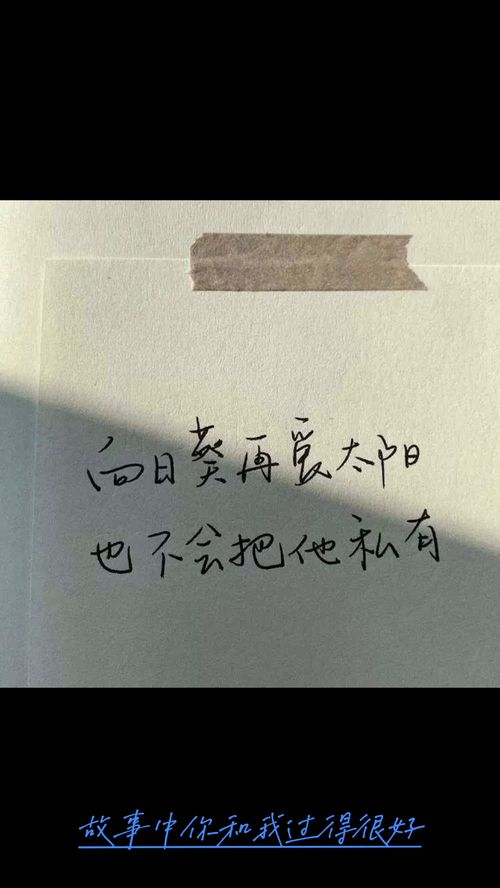 向日葵再爱太阳
也不会把他私有
故事中你和我过得很好